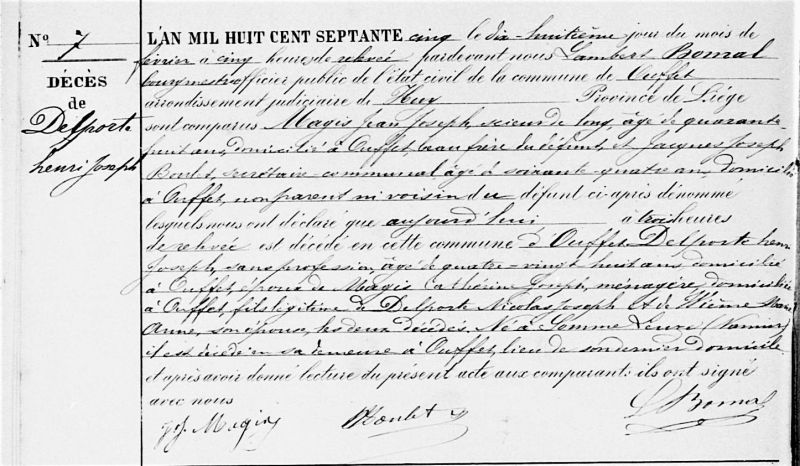 N° 7
DÉCÈS
de
Delporte
henri Joseph
L'AN MIL HUIT CENT SEPTANTE cinq le dix-huitième jour du mois de
février à cinq heures de relevée pardevant nous Lambert Bomal
bourgmestre officier public de l'état civil de la commune de Ouffet
arrondissement judiciaire de Huy Province de Liége
sont comparus Magis Jean Joseph, scieur de long, âgé de quarante-
huit ans, domicilié à Ouffet, beau frère du défunt, et Jacques Joseph
secrétaire communal âgé de soixante quatre ans, domicilié
à Ouffet, non parent ni voisin du défunt ci-après dénommé
lesquels nous ont déclaré que aujourd'hui à trois heures
de relevée est décédé en cette commune d'Ouffet Delporte henri
Joseph, sans profession, âgé de quatre-vingt huit ans, domicilié
à Ouffet époux de Magis Catherine Joseph, ménagère, domiciliée
à Ouffet, fils légitime de Delporte Nicolas Joseph et de Marie
Anne, son épouse, les deux décédés. Né à Somme Leuze (Namur)
il est décédé en sa demeure à Ouffet, lieu de son dernier domicile
et après avoir donné lecture du présent acte aux comparants ils ont signé
avec nous
J J Magis
L Bomal